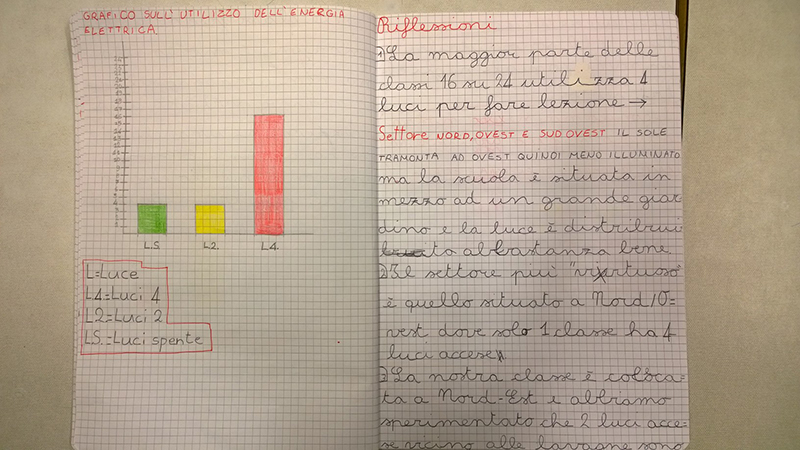 GRAFICO SULL'UTILIZZO DELL'ENERGIA
ELETTRICA.
L.S. L.2. L.4.
L=Luce
L4=Luci 4
L2=Luci 2
LS.=Luci spente
Riflessioni
1) La maggior parte delle
classi 16 su 24 utilizza 4
luci per fare lezione →
Settore NORD, OVEST E SUD OVEST IL SOLE
TRAMONTA AD OVEST QUINDI MENO ILLUMINATO
ma la scuola è situata in
mezzo ad un grande giar
dino e la luce è distribui
ta abbastanza bene.
2) Il settore più "virtuoso"
è quello situato a Nord/O=
vest dove solo 1 classe ha 4
luci accese.
3) La nostra classe è colloca=
ta a Nord-Est e abbiamo
sperimentato che 2 luci acce=
se vicino alle lavagne sono